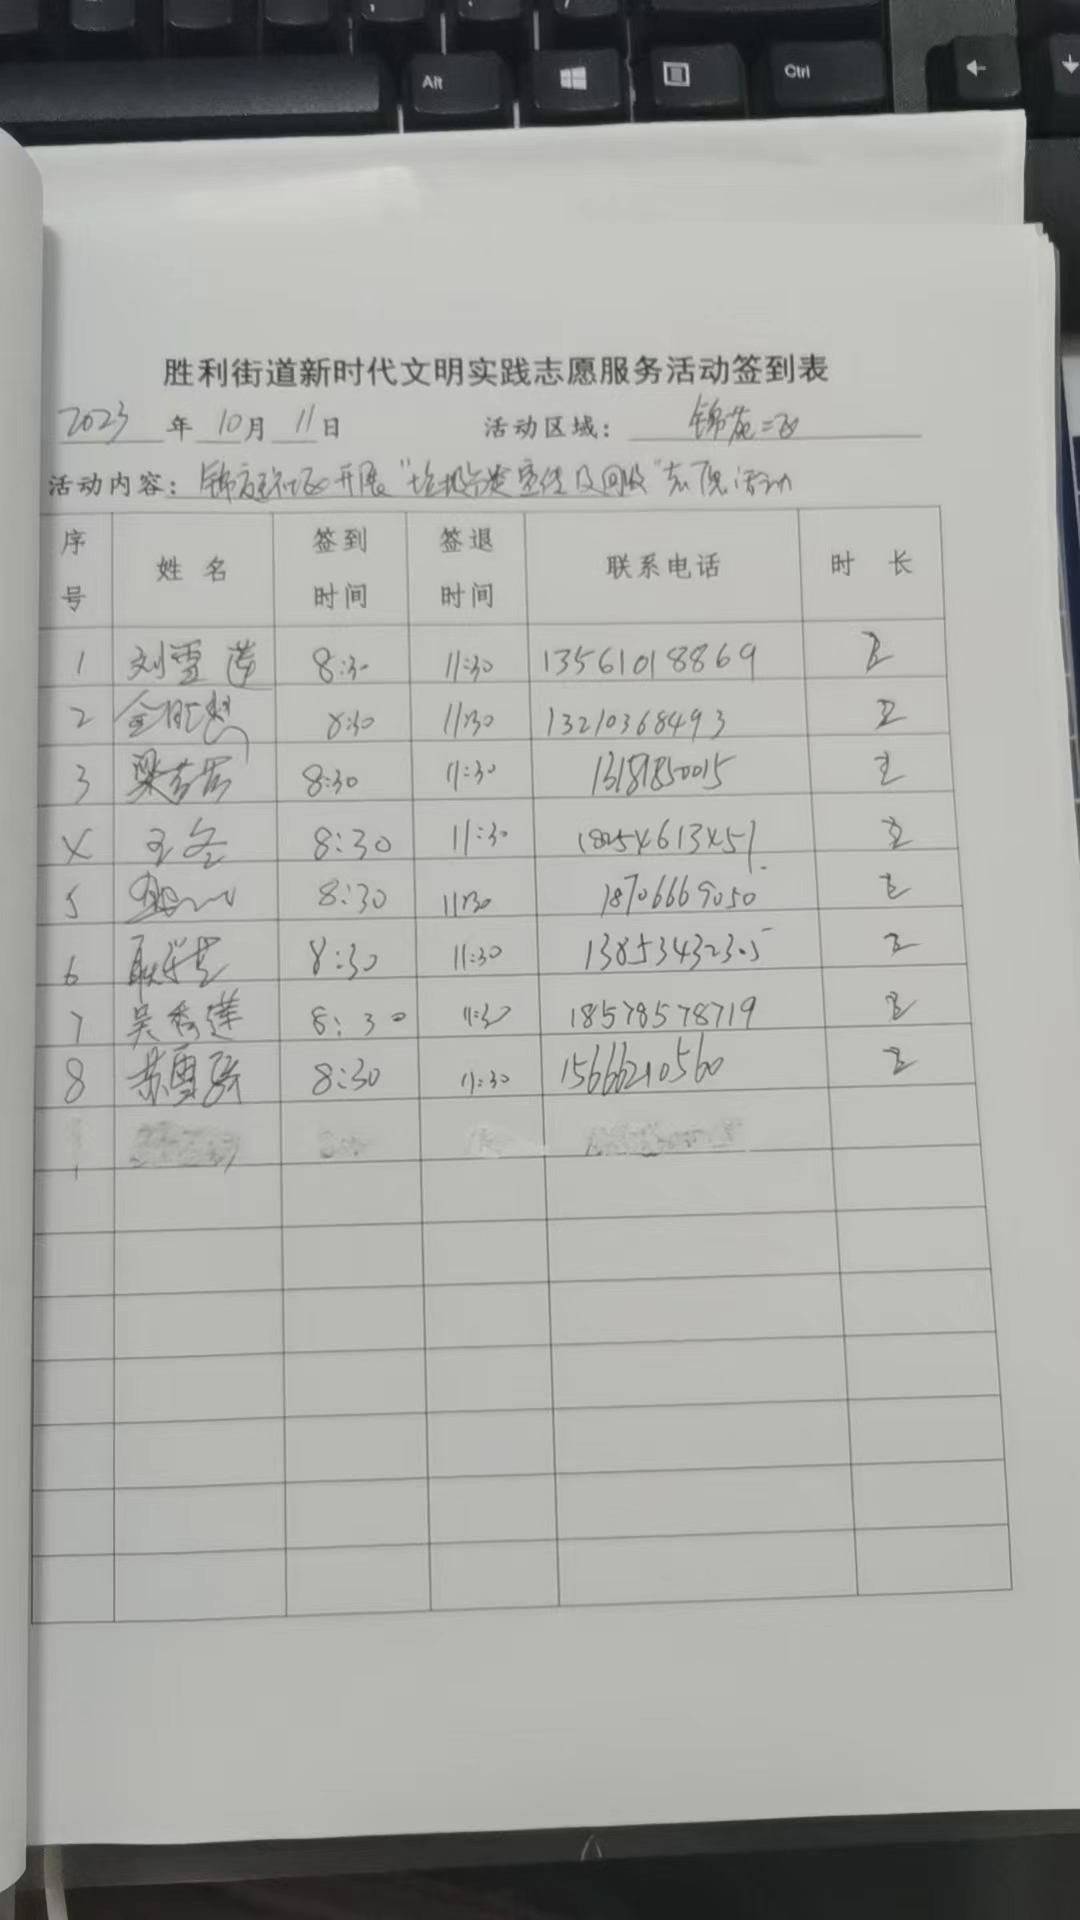 Alt
Ctrl
胜利街道新时代文明实践志愿服务活动签到表
2023年10月11日 活动区域：锦苑二区
活动内容：开展“垃圾分类宣传及回收”志愿活动
序号 姓名 签到时间 签退时间 联系电话 时长
1 刘雪莲 8:30 11:30 13561018869
2 8:30 11:30 13210368493
3 8:30 11:30 13181850015
4 王冬 8:30 11:30 18254613451
5 8:30 11:30 18706669050
6 8:30 11:30 13853432305
7 吴秀莲 8:30 11:30 18578578719
8 8:30 11:30 15666210560